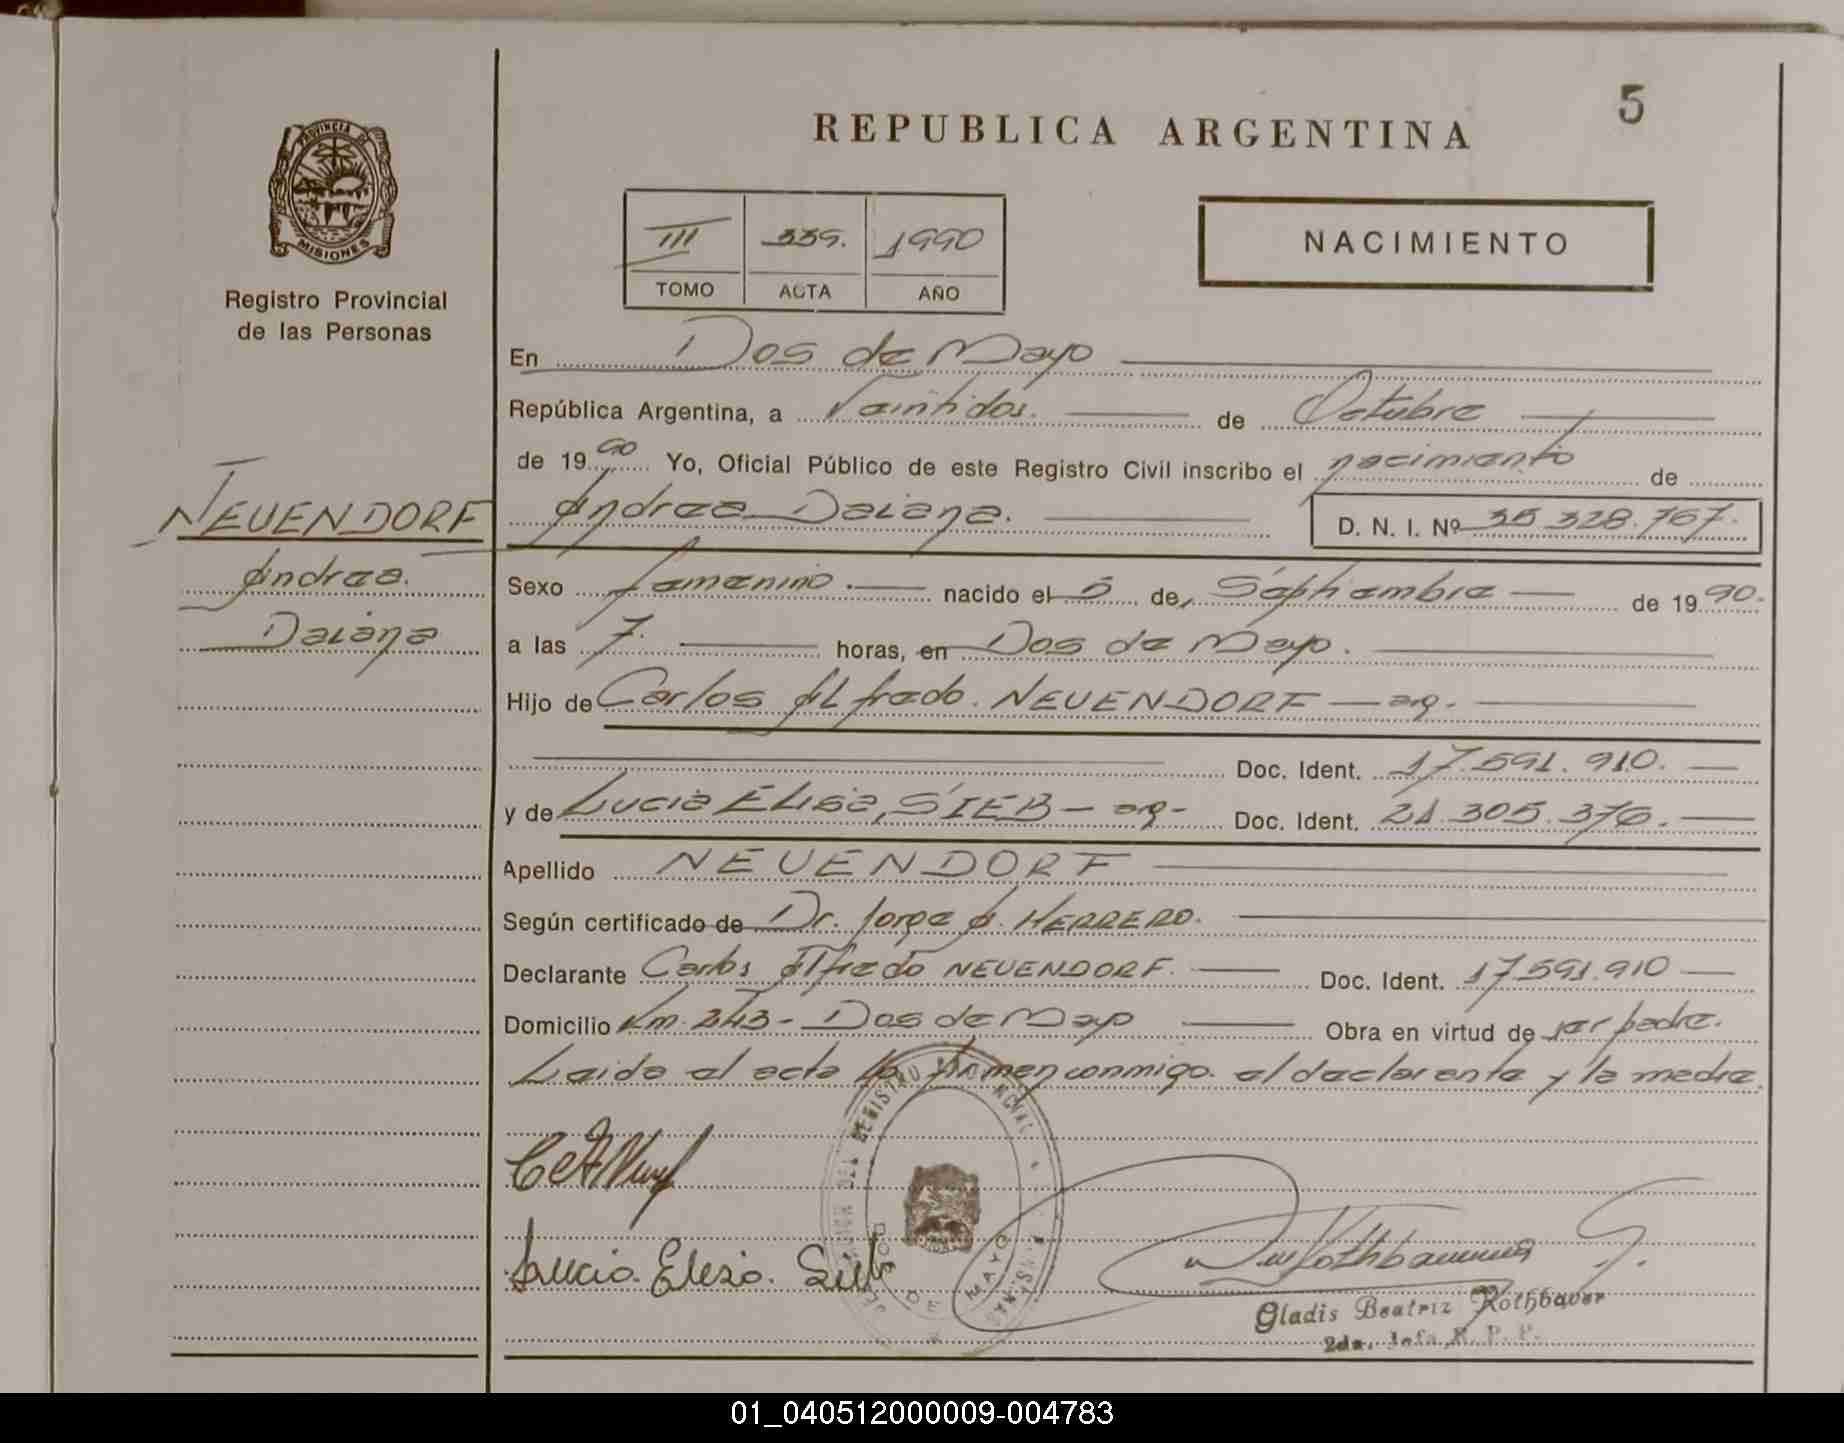 5
REPUBLICA ARGENTINA
PROVINCIA DE
MISIONES
Registro Provincial
de las Personas
III 339. 1990
TOMO ACTA AÑO
NACIMIENTO
En Dos de Mayo
República Argentina, a Veintidos. de Octubre
de 1990 Yo, Oficial Público de este Registro Civil inscribo el nacimiento de
NEUENDORF
Andrea
Daiana
Andrea Daiana. D. N. I. Nº 35 328.767.
Sexo femenino. nacido el 5 de Septiembre de 1990.
a las 7. horas, en Dos de Mayo.
Hijo de Carlos Alfredo. NEUENDORF — arg.
Doc. Ident. 17.591.910.
y de Lucia Elisa, SIEB — arg - Doc. Ident. 21.305.376.
Apellido NEUENDORF
Según certificado de Dr. Jorge A. HERRERO.
Declarante Carlos Alfredo NEUENDORF. Doc. Ident. 17.591.910
Domicilio Km. 243 - Dos de Mayo Obra en virtud de ser padre.
Leida el acta la firman conmigo. el declarante y la madre.
DOS DE MAYO
Lucia. Elisa. Sieb
Gladis Beatriz Rothbauer
2da. Jefa R. P. P.
01_040512000009-004783